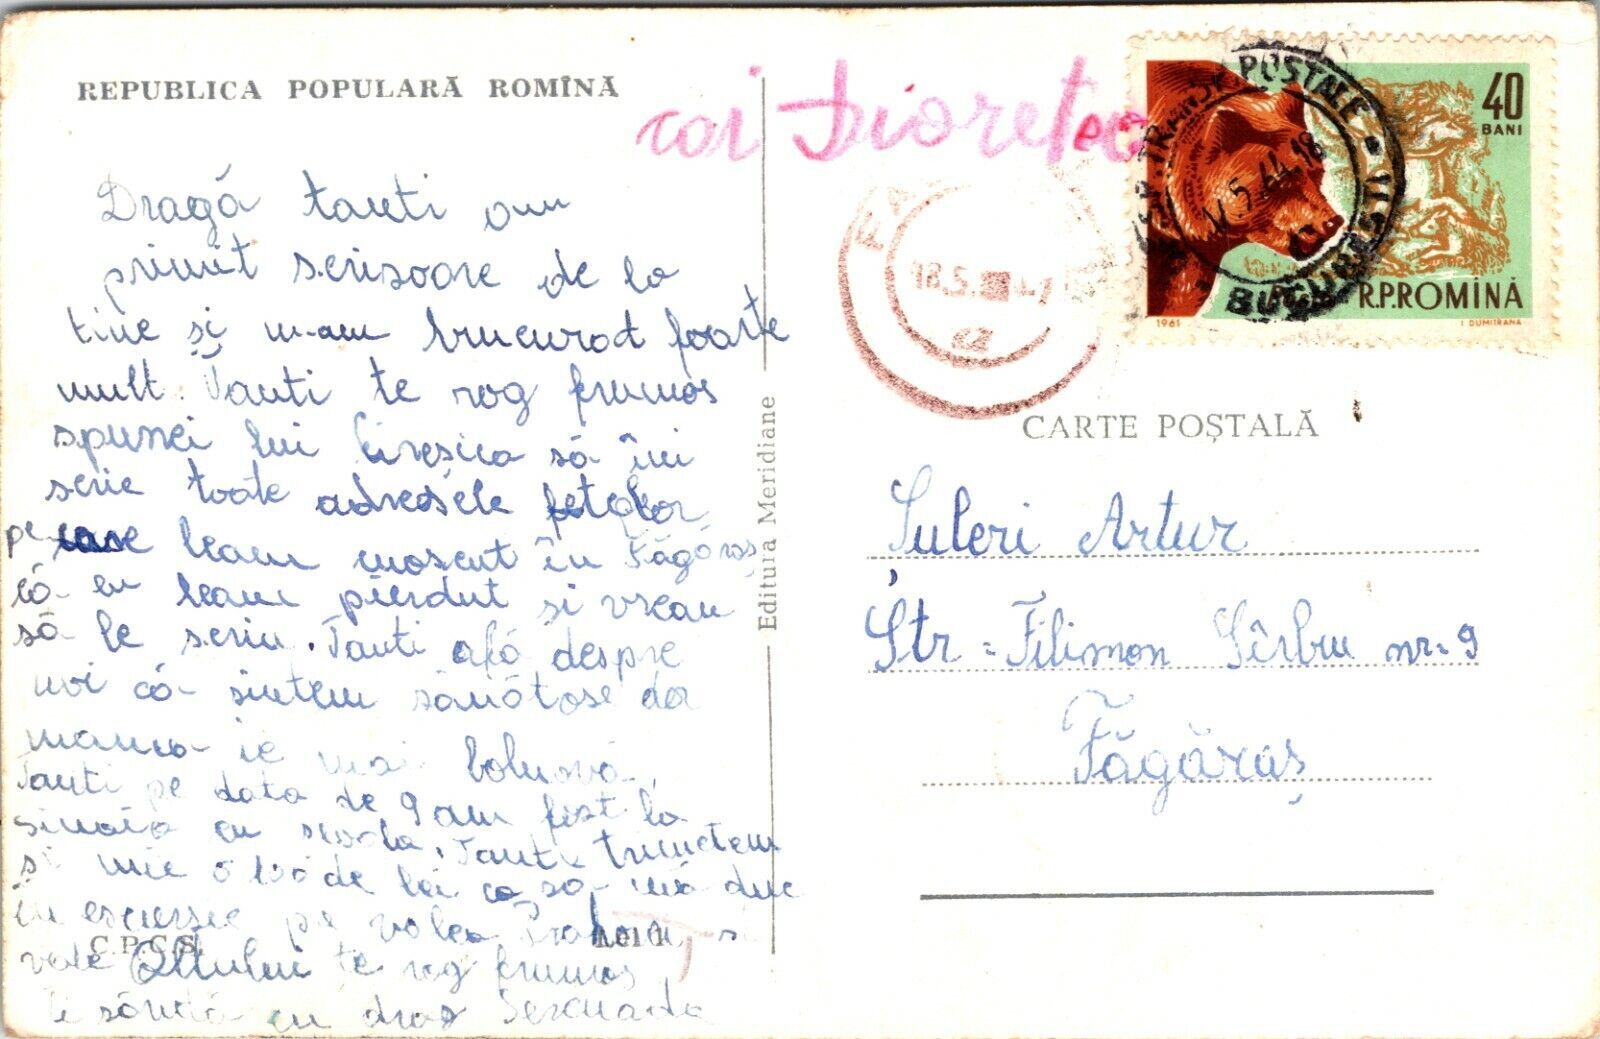 REPUBLICA POPULARĂ ROMÎNĂ
Dragă tanti am
primit scrisoare de la
tine si m-am bucurat foarte
mult. Tanti te rog frumos
spunei lui să îmi
scrie toate adresele fetelor
pe care leam cunoscut în Făgăraș
că eu leam pierdut si vreau
să le scriu. Tanti află despre
noi că sintem sănătose dar
mama ie mai bolnavă
Tanti pe data de 9 am fost la
sinaia cu scoala. Tanti trimetem
si mie 100 de lei ca să mă duc
în escursie pe valea Prahovei si
valea Oltului te rog frumos
te sărută cu drag
C.P.C.S.
Lei 1
Editura Meridiane
POSTALE
BUCURESTI
18.5.
40
BANI
R.P.ROMÎNĂ
1961
I DUMITRANA
CARTE POȘTALĂ
Suleri Artur
Str. Filimon Sîrbu nr. 9
Făgăraș